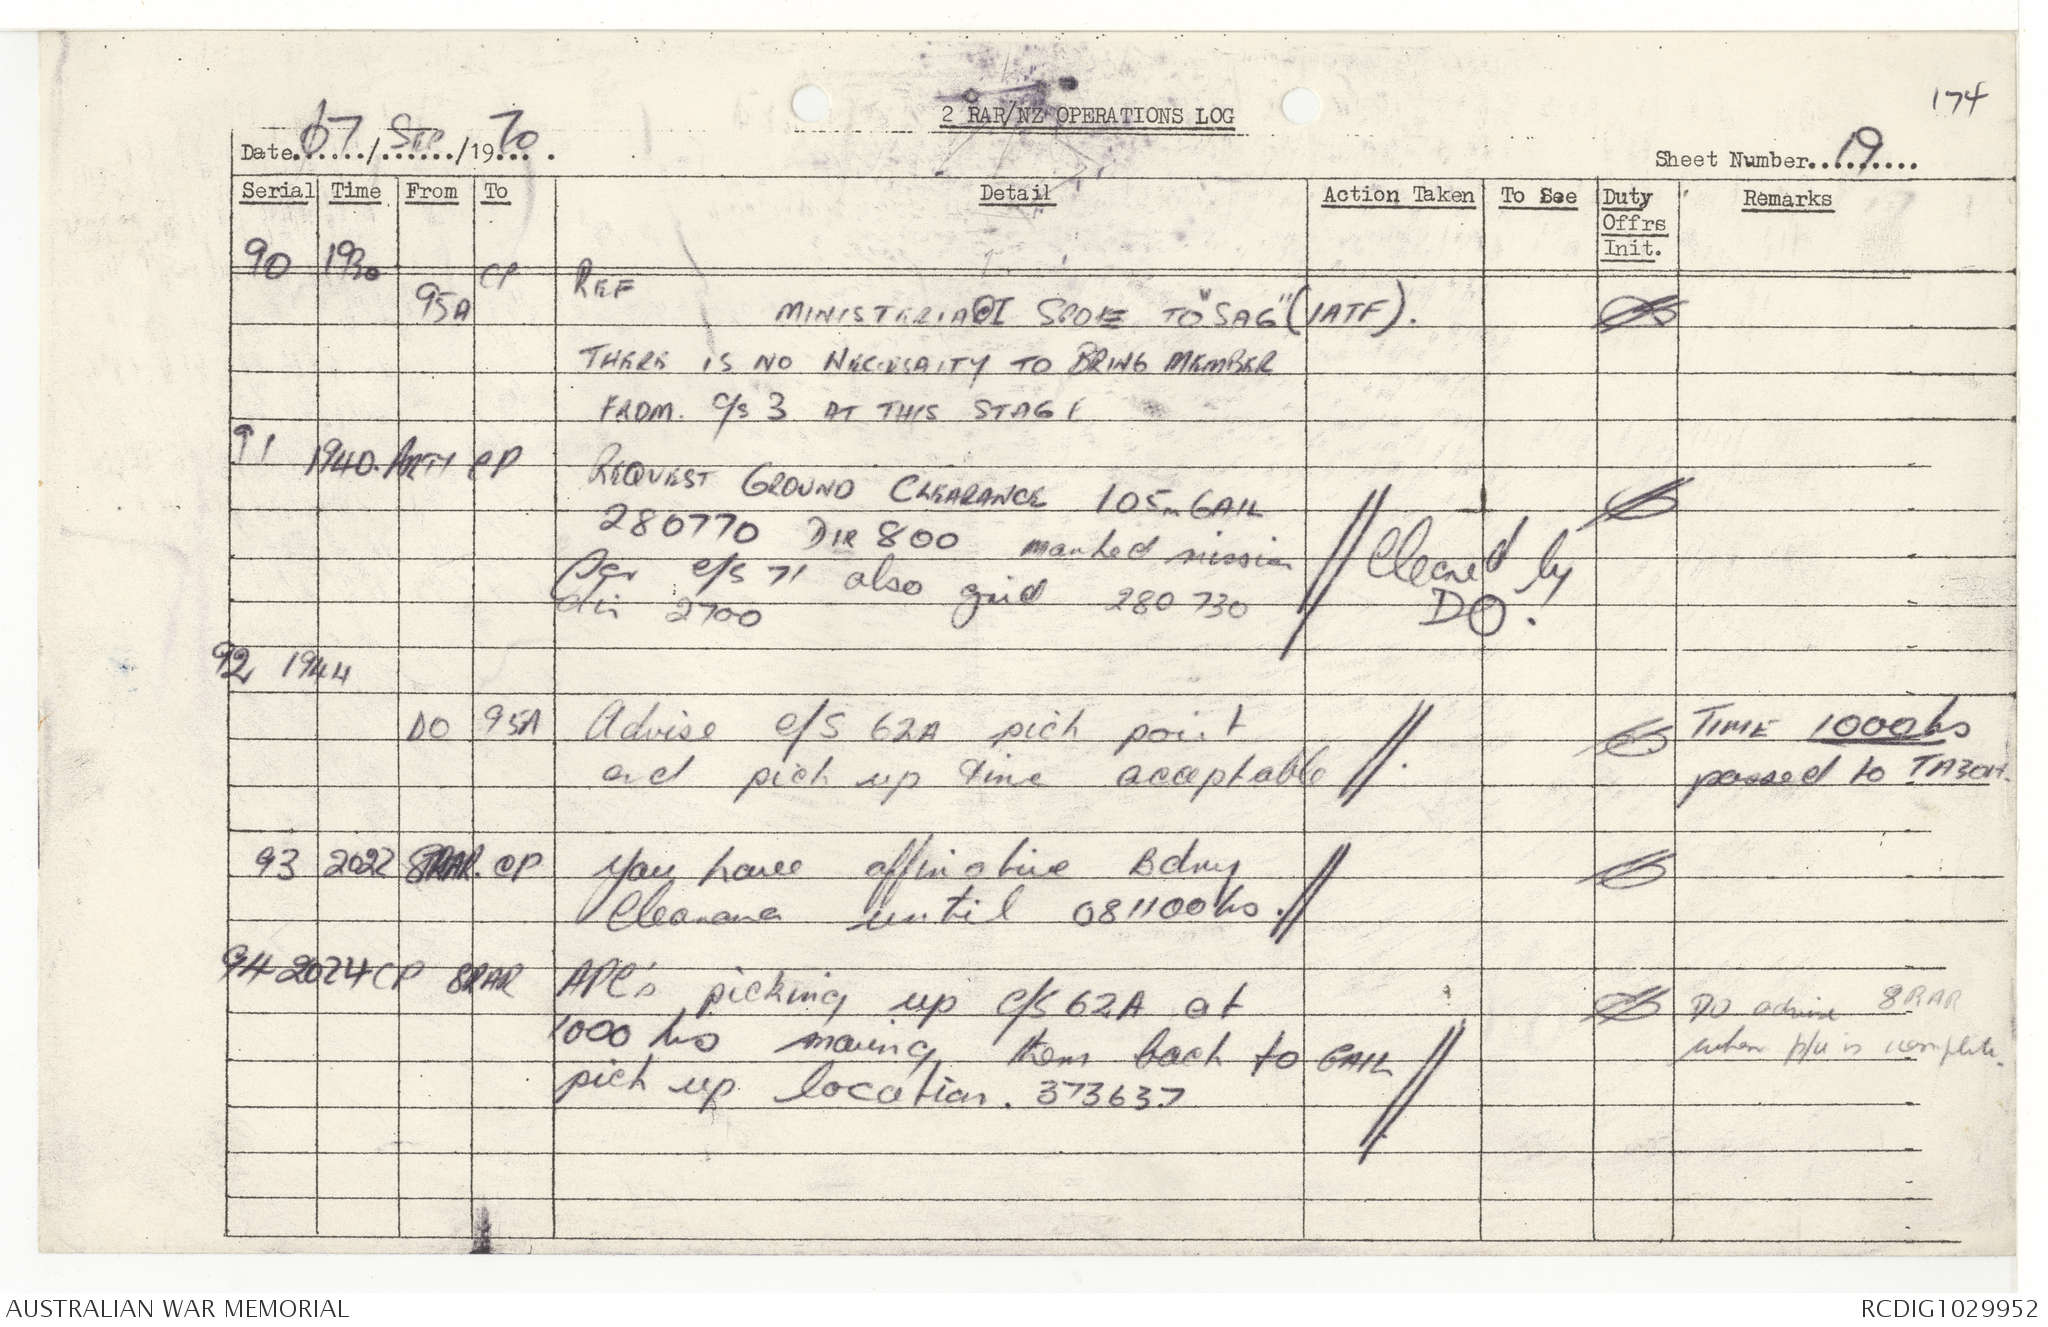 174
2 RAR/NZ OPERATIONS LOG
Date 07/SEP/1970
Sheet Number 19
Serial Time From To Detail Action Taken To See Duty Offrs Init. Remarks
90 1930 95A CP REF
MINISTERIAL I SPOKE TO "SAG" (1ATF).
THERE IS NO NECESSAITY TO BRING MEMBER
FROM. C/S 3 AT THIS STAGE
91 1940. ARTY CP REQUEST GROUND CLEARANCE 105m GAIL
280770 DIR 800 marked mission
for c/s 71 also grid 280730
dir 2700
// Cleared by
DO.
92 1944
DO 95A Advise c/S 62A pick point
and pick up time acceptable //.
TIME 1000hs
passed to
93 2022 8RAR. CP You have affirmative Bdry
Clearance until 081100hs. //
94 2024 CP 8RAR APC's picking up c/S 62A at
1000 hs moving them back to GAIL
pick up location. 373637 //
DO advise 8RAR
when p/u is complete.
AUSTRALIAN WAR MEMORIAL
RCDIG1029952